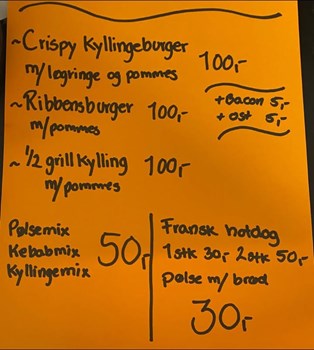 ~Crispy Kyllingeburger
m/løgringe og pommes 100,-
~Ribbensburger 100,-
m/pommes
+Bacon 5,-
+ost 5,-
~1/2 grill kylling 100,-
m/pommes
Pølsemix
Kebabmix 50,-
Kyllingemix
Fransk hotdog
1stk 30,- 2stk 50,-
Pølse m/ brød
30,-